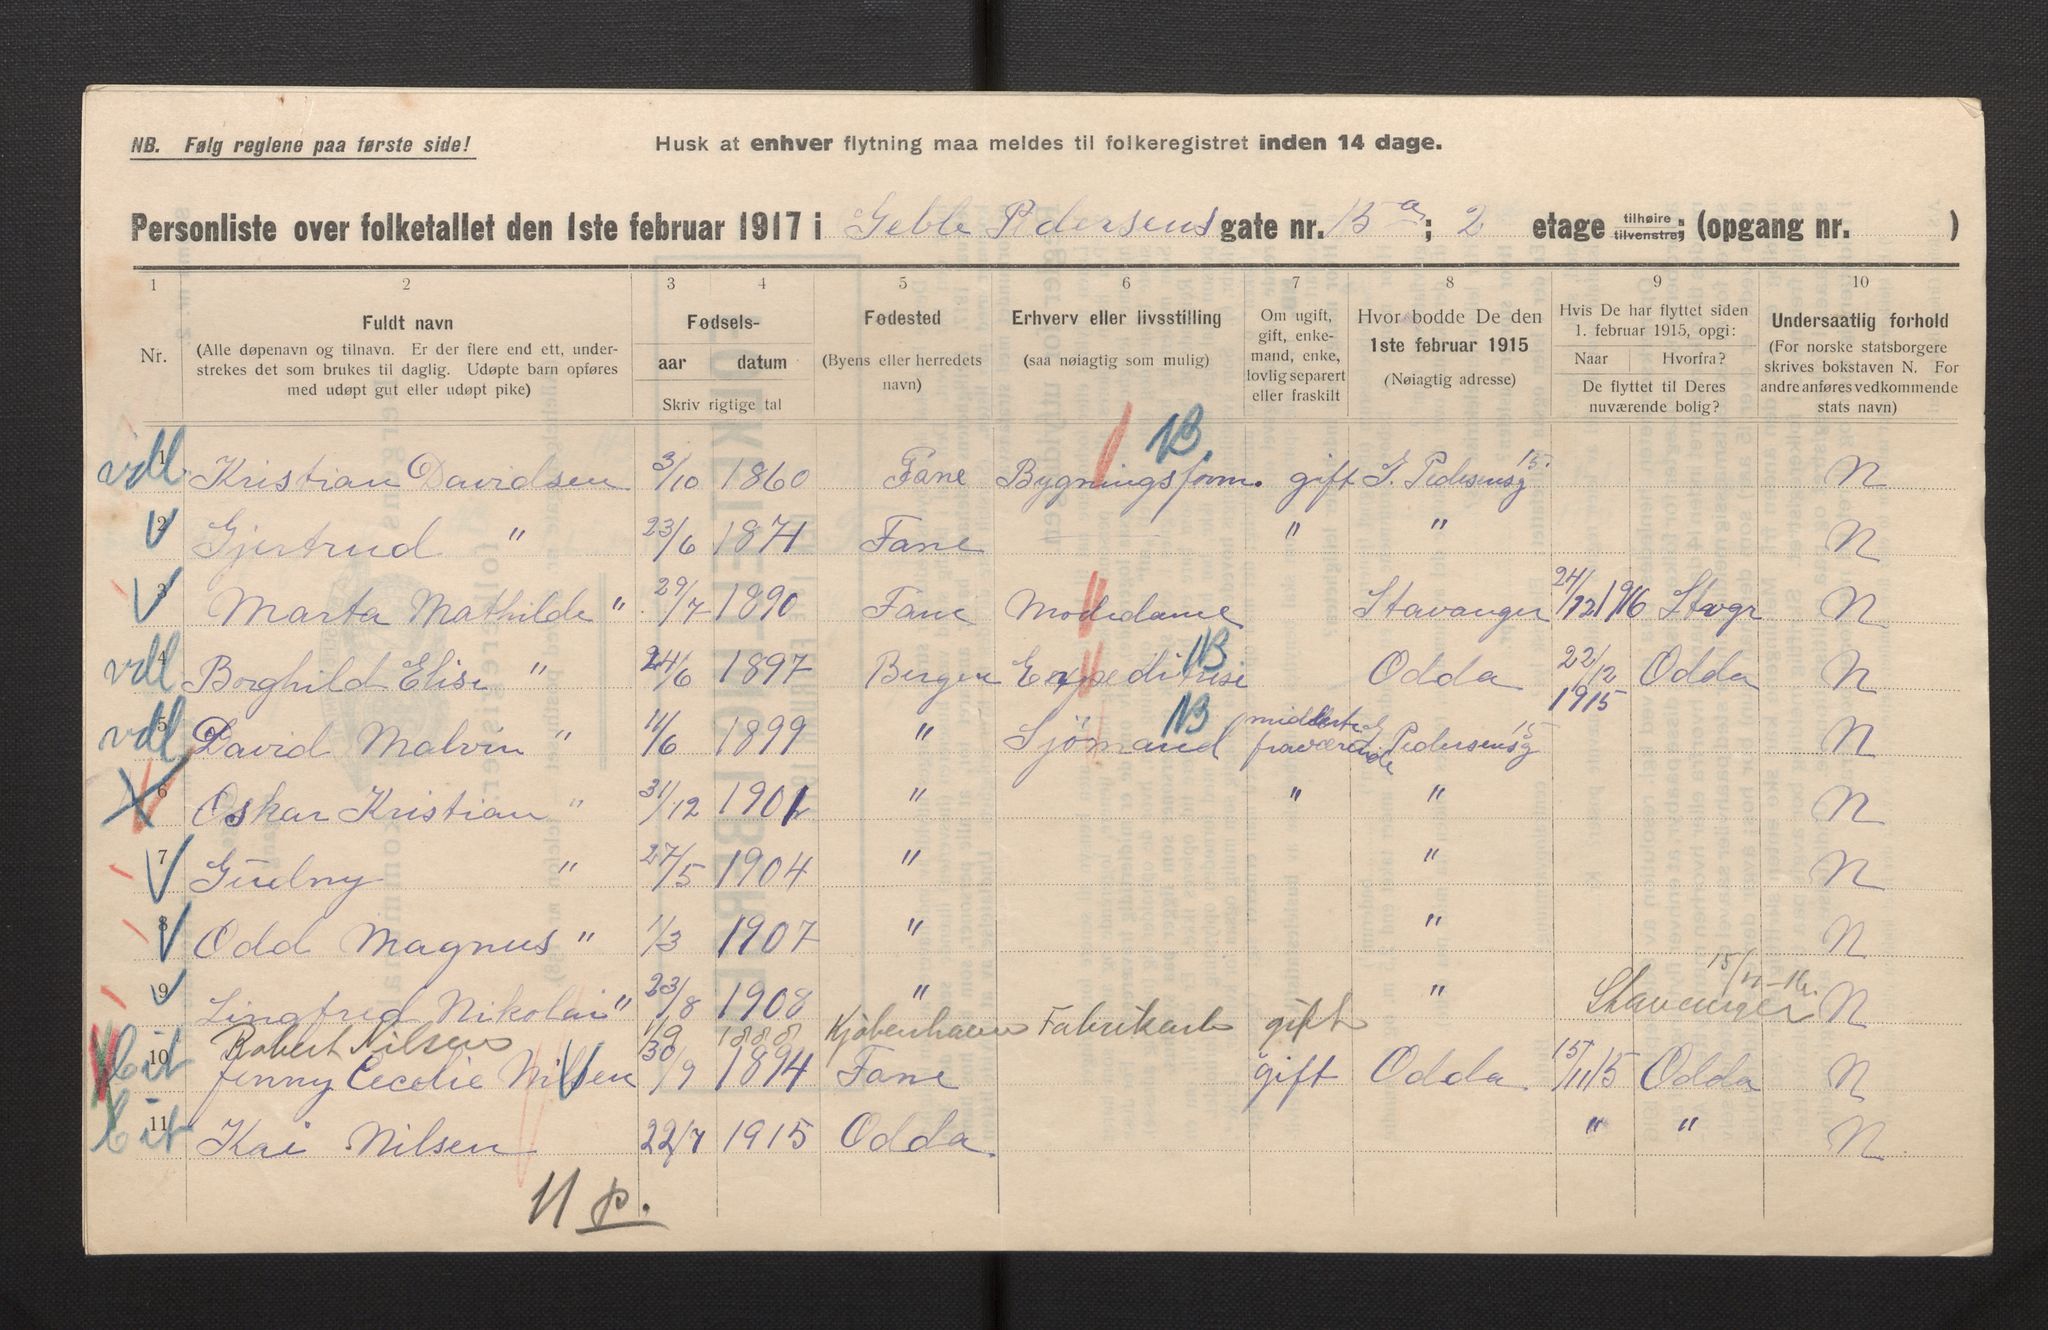 NB. Følg reglene paa første side!
Husk at enhver flytning maa meldes til folkeregistret inden 14 dage.
Personliste over folketallet den 1ste februar 1917 i Geble Pedersens gate nr. 15 a; 2 etage tilhøire tilvenstre; (opgang nr. )
1 2 3 4 5 6 7 8 9 10
Nr.
Fuldt navn
(Alle døpenavn og tilnavn. Er der flere end ett, under-
strekes det som brukes til daglig. Udøpte barn opføres
med udøpt gut eller udøpt pike)
Fødsels-
aar datum
Skriv rigtige tal
Fødested
(Byens eller herredets
navn)
Erhverv eller livsstilling
(saa nøiagtig som mulig)
Om ugift,
gift, enke-
mand, enke,
lovlig separert
eller fraskilt
Hvor bodde De den
1ste februar 1915
(Nøiagtig adresse)
Hvis De har flyttet siden
1. februar 1915, opgi:
Naar Hvorfra?
De flyttet til Deres
nuværende bolig?
Undersaatlig forhold
(For norske statsborgere
skrives bokstaven N. For
andre anføres vedkommende
stats navn)
vdl 1 Kristian Davidsen 3/10 1860 Fane Bygningsform. NB gift G. Pedersensg 15 N
2 Gjertrud " 23/6 1871 Fane " " N
3 Marta Mathilde " 29/7 1890 Fane Modedame Stavanger 24/12 1916 Stavgr N
vdl 4 Borghild Elise " 24/6 1897 Bergen Expeditrise NB Odda 22/12 1915 Odda N
vdl 5 David Malvin " 11/6 1899 " Sjømand NB midlerted fraværende G Pedersensg 15 N
6 Oskar Kristian " 31/12 1901 " " " N
7 Gudny " 27/5 1904 " " N
8 Odd Magnus " 1/3 1907 " " N
9 Lingfred Nikolai " 23/8 1908 " " N
Robert Nilsen 1/9 1888 Kjøbenhavn Fabrikarb gift Stavanger 15/11-16.
bit 10 Jenny Cecelie Nilsen 30/9 1894 Fane gift Odda 15/11 15 Odda N
bit 11 Kai Nilsen 22/7 1915 Odda " " N
11 p.